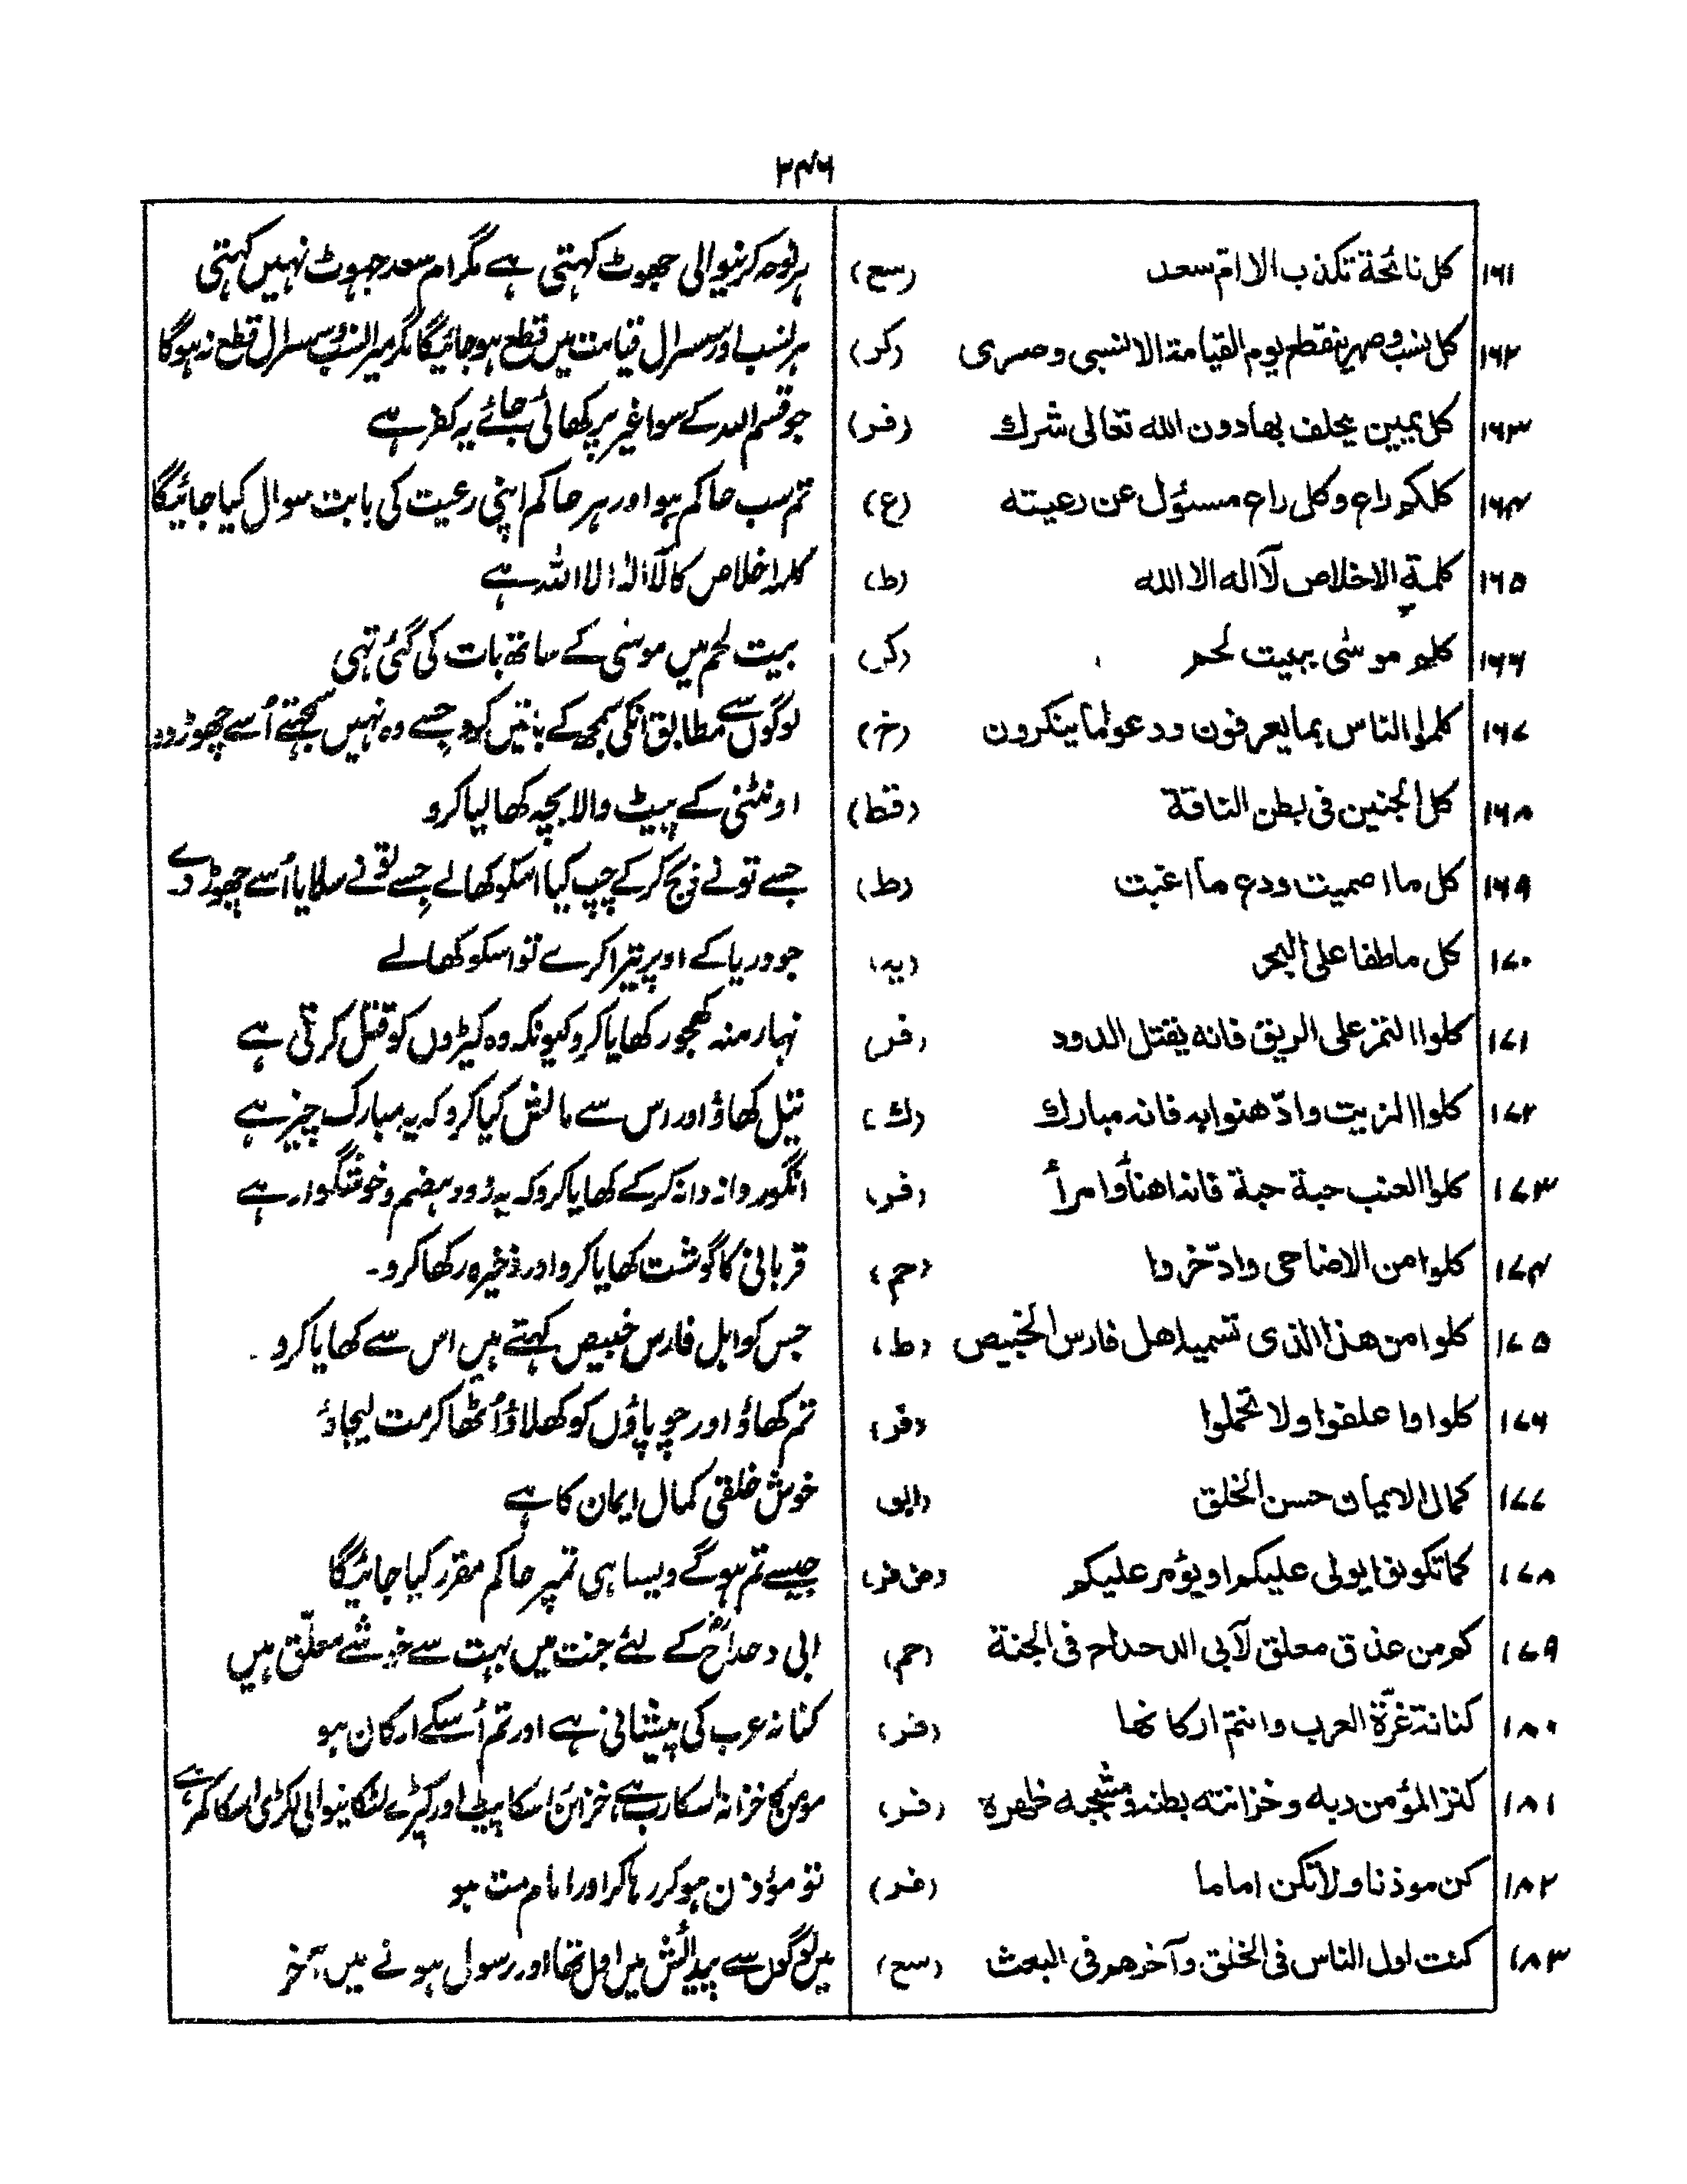 ۲۴۶
۱۶۱ كل نائحة تكذب الا امّ سعد (سع) ہر نوحہ کرنیوالی جھوٹ کہتی ہے مگر ام سعد جہوٹ نہیں کہتی
۱۶۲ كل نسب وصهر ينقطع يوم القيامة الا نسبي وصهرى (كر) ہر نسب اور سسرال قیامت میں قطع ہو جائیگا مگر میرا نسب و سسرال قطع نہ ہوگا
۱۶۳ كل يمين يحلف بها دون الله تعالى شرك (فر) جو قسم اللہ کے سوا غیر پر کھائی جائے یہ کفر ہے
۱۶۴ كلكم راع وكل راع مسئول عن رعيته (ع) تم سب حاکم ہو اور ہر حاکم اپنی رعیت کی بابت سوال کیا جائیگا
۱۶۵ كلمة الاخلاص لآ اله الا الله (ط) کلمہ اخلاص کا لآ الہ الا اللہ ہے
۱۶۶ كلم موسٰى ببيت لحم (كر) بیت لحم میں موسٰی کے ساتھ بات کی گئی تہی
۱۶۷ كلموا الناس بما يعرفون ودعوا ما ينكرون (خ) لوگوں سے مطابق انکی سمجھ کے باتیں کرو جسے وہ نہیں سمجھتے اُسے چھوڑ دو
۱۶۸ كل الجنين فى بطن الناقة (قط) اونٹنی کے پیٹ والا بچہ کھا لیا کرو
۱۶۹ كل ما اصميت ودع ما اغبت (ط) جسے تونے ذبح کر کے چپ کیا اسکو کھا لے جسے تونے سلایا اُسے چھوڑ دے
۱۷۰ كل ما طفا على البحر (يه) جو دریا کے اوپر تیرا کرے تو اسکو کھا لے
۱۷۱ كلوا التمر على الريق فانه يقتل الدود (فر) نہار منہ کھجور کھایا کرو کیونکہ وہ کیڑوں کو قتل کرتی ہے
۱۷۲ كلوا الزيت وادّهنوا به فانه مبارك (ك) تیل کھاؤ اور اس سے مالش کیا کرو کہ یہ مبارک چیز ہے
۱۷۳ كلوا العنب حبة حبة فانه اهنأ وامرأ (فر) انگور دانہ دانہ کر کے کھایا کرو کہ یہ زود ہضم و خوشگوار ہے
۱۷۴ كلوا من الاضاحى وادّخروا (حم) قربانی کا گوشت کھایا کرو اور ذخیرہ رکھا کرو۔
۱۷۵ كلوا من هذا الذى تسميه اهل فارس الخبيص (ط) جس کو اہل فارس خبیص کہتے ہیں اس سے کھایا کرو۔
۱۷۶ كلوا واعلفوا ولا تحملوا (فر) تم کھاؤ اور چوپاؤں کو کھلاؤ اُٹھا کر مت لیجاؤ
۱۷۷ كمال الايمان حسن الخلق (ابو) خوش خلقی کمال ایمان کا ہے
۱۷۸ كما تكونوا يولى عليكم او يؤمر عليكم (فر) جیسے تم ہوگے ویسا ہی تمپر حاکم مقرر کیا جائیگا
۱۷۹ كم من عذق معلق لآبى الدحداح فى الجنة (حم) ابی دحداحؓ کے لئے جنت میں بہت سے خوشے معلّق ہیں
۱۸۰ كنانة غرّة العرب وانتم اركانها (فر) کنانہ عرب کی پیشانی ہے اور تم اُسکے ارکان ہو
۱۸۱ كنز المؤمن ربه وخزانته بطنه ومشجبه ظهره (فر) مومن کا خزانہ اسکا رب ہے خزائن اسکا پیٹ اور کپڑے لٹکانیوالی لکڑی اسکا کمر ہے
۱۸۲ كن موذنا ولا تكن اماما (فر) تو مؤذن ہو کر رہا کر اور امام مت ہو
۱۸۳ كنت اول الناس فى الخلق وآخرهم فى البعث (سع) میں لوگوں سے پیدائش میں اول تھا اور رسول ہونے میں آخر